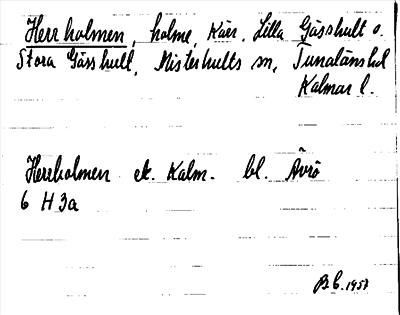 Herrholmen, holme, Kärr, Lilla Gässhult o.
Stora Gässhult, Misterhults sn, Tunaläns hd
Kalmar l.
Herrholmen ek. Kalm. bl. Ävrö
6 H 3a
B.C. 1957